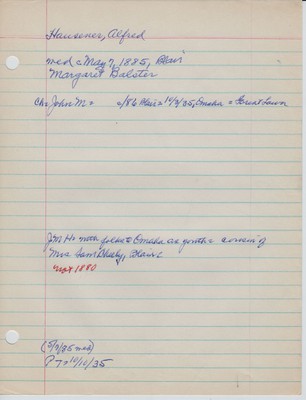 Hausener, Alfred
med = May 7, 1885, Blair
Margaret Balster
Ch: John M = = /86 Blair = 10/9/35, Omaha = Forest Lawn
JM H = with folks to Omaha as youth = cousin of
Mrs Sam Sheely, Blair =
not 1880
(5/7/85 med)
P T = 10/10/35